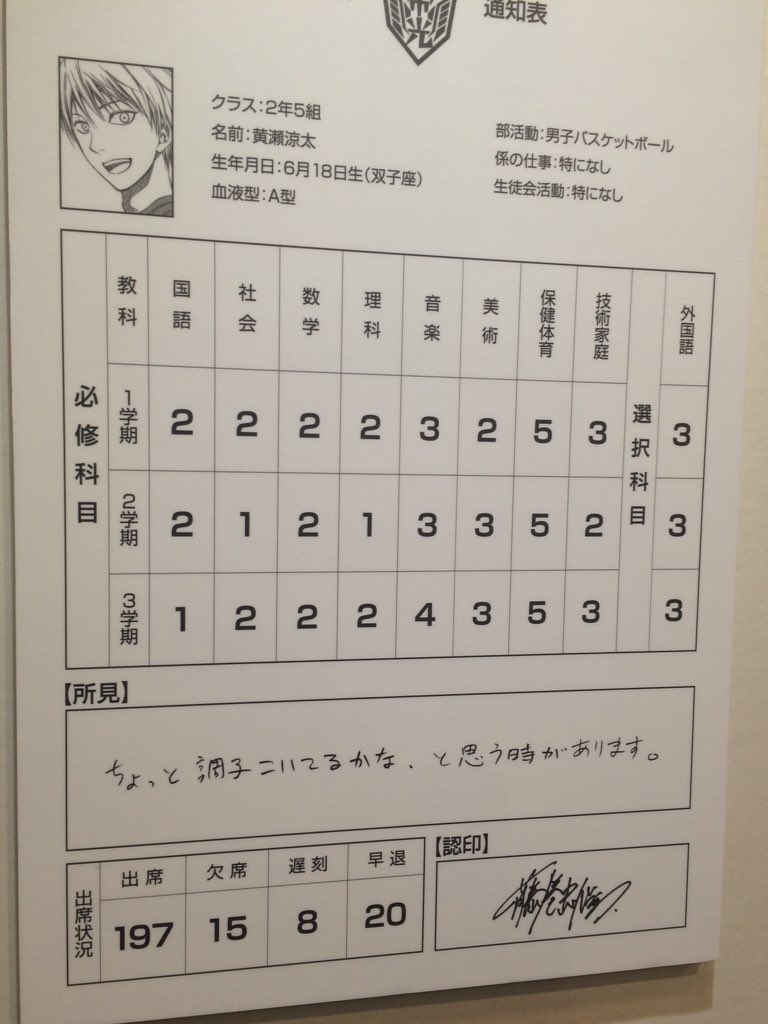 通知表
クラス:2年5組
名前:黄瀬涼太
生年月日:6月18日生(双子座)
血液型:A型
部活動:男子バスケットボール
係の仕事:特になし
生徒会活動:特になし
必修科目
教科 国語 社会 数学 理科 音楽 美術 保健体育 技術家庭 選択科目 外国語
1学期 2 2 2 2 3 2 5 3 3
2学期 2 1 2 1 3 3 5 2 3
3学期 1 2 2 2 4 3 5 3 3
【所見】
ちょっと調子こいてるかな、と思う時があります。
出席状況
出席 欠席 遅刻 早退
197 15 8 20
【認印】